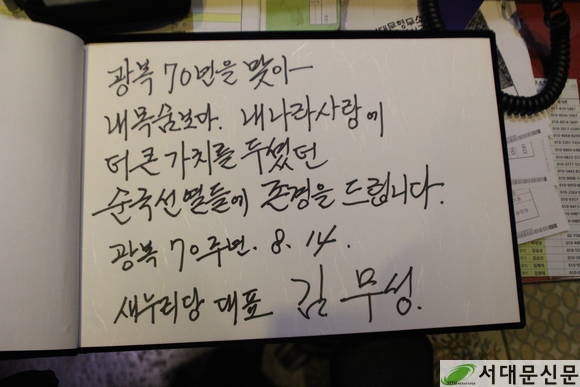 광복 70년을 맞아
내목숨보다. 내나라사랑에
더 큰 가치를 두셨던
순국선열들에 존경을 드립니다.
광복 70주년. 8. 14.
새누리당 대표 김무성.
서대문신문